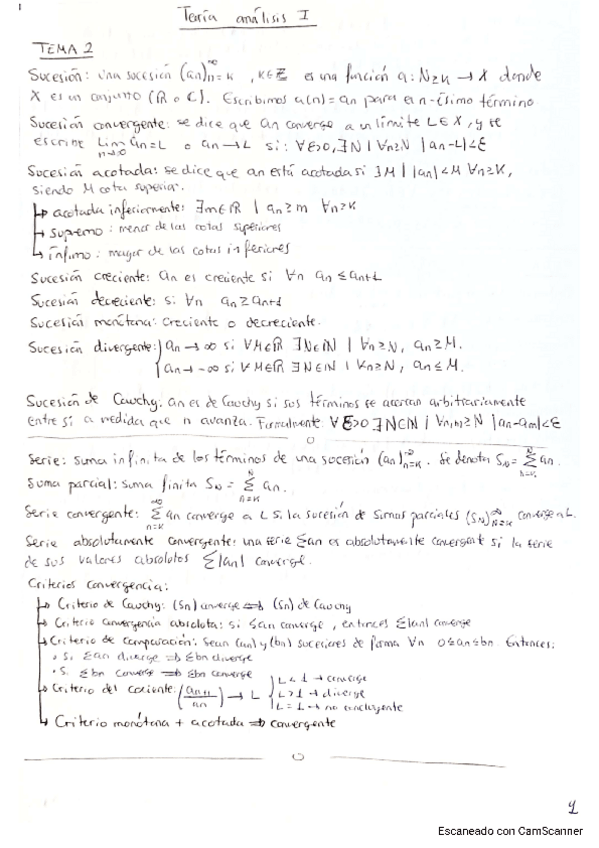 Teoría análisis I
TEMA 2
Sucesión: Una sucesión (an)_{n=k}^∞, k∈ℤ es una función a: N≥k → X donde
X es un conjunto (ℝ o ℂ). Escribimos a(n)=an para el n-ésimo término
Sucesión convergente: se dice que an converge a un límite L∈X, y se
escribe Lim_{n→∞} an=L o an→L si: ∀ε>0, ∃N | ∀n≥N |an-L|<ε
Sucesión acotada: se dice que an está acotada si ∃M | |an|<M ∀n≥k,
siendo M cota superior.
↳ acotada inferiormente: ∃m∈ℝ | an≥m ∀n≥k
↳ supremo: menor de las cotas superiores
↳ ínfimo: mayor de las cotas inferiores
Sucesión creciente: an es creciente si ∀n an≤an+1
Sucesión decreciente: si ∀n an≥an+1
Sucesión monótona: creciente o decreciente.
Sucesión divergente: { an→∞ si ∀M∈ℝ ∃N∈ℕ | ∀n≥N, an≥M.
{ an→-∞ si ∀M∈ℝ ∃N∈ℕ | ∀n≥N, an≤M.
Sucesión de Cauchy: an es de Cauchy si sus términos se acercan arbitrariamente
entre sí a medida que n avanza. Formalmente: ∀ε>0 ∃N∈ℕ | ∀n,m≥N |an-am|<ε
Serie: suma infinita de los términos de una sucesión (an)_{n=k}^∞. Se denota
Suma parcial: suma finita S_N = Σ_{n=k}^{N} an.
Serie convergente: Σ_{n=k}^{∞} an converge a L si la sucesión de sumas parciales (S_N)_{N≥k}^∞ converge a L.
Serie absolutamente convergente: una serie Σan es absolutamente convergente si la serie
de sus valores absolutos Σ|an| converge.
Criterios convergencia:
↳ Criterio de Cauchy: (Sn) converge ⟺ (Sn) de Cauchy
↳ Criterio convergencia absoluta: si Σan converge, entonces Σ|an| converge
↳ Criterio de comparación: Sean (an) y (bn) sucesiones de forma ∀n 0≤an≤bn. Entonces:
· Si Σan diverge ⇒ Σbn diverge
· Si Σbn converge ⇒ Σbn converge
↳ Criterio del cociente: (an+1/an) → L { L<1 → converge
L>1 → diverge
L=1 → no concluyente
↳ Criterio monótona + acotada ⇒ convergente
1
Escaneado con CamScanner